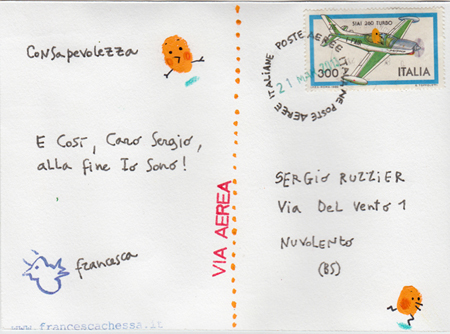 Consapevolezza
E Così, Caro Sergio,
alla fine Io Sono!
francesca
www.francescachessa.it
VIA AEREA
SIAI 260 TURBO
300 ITALIA
POSTE AEREE ITALIANE POSTE AEREE ITALIANE
SERGIO RUZZIER
Via Del Vento 1
NUVOLENTO
(BS)